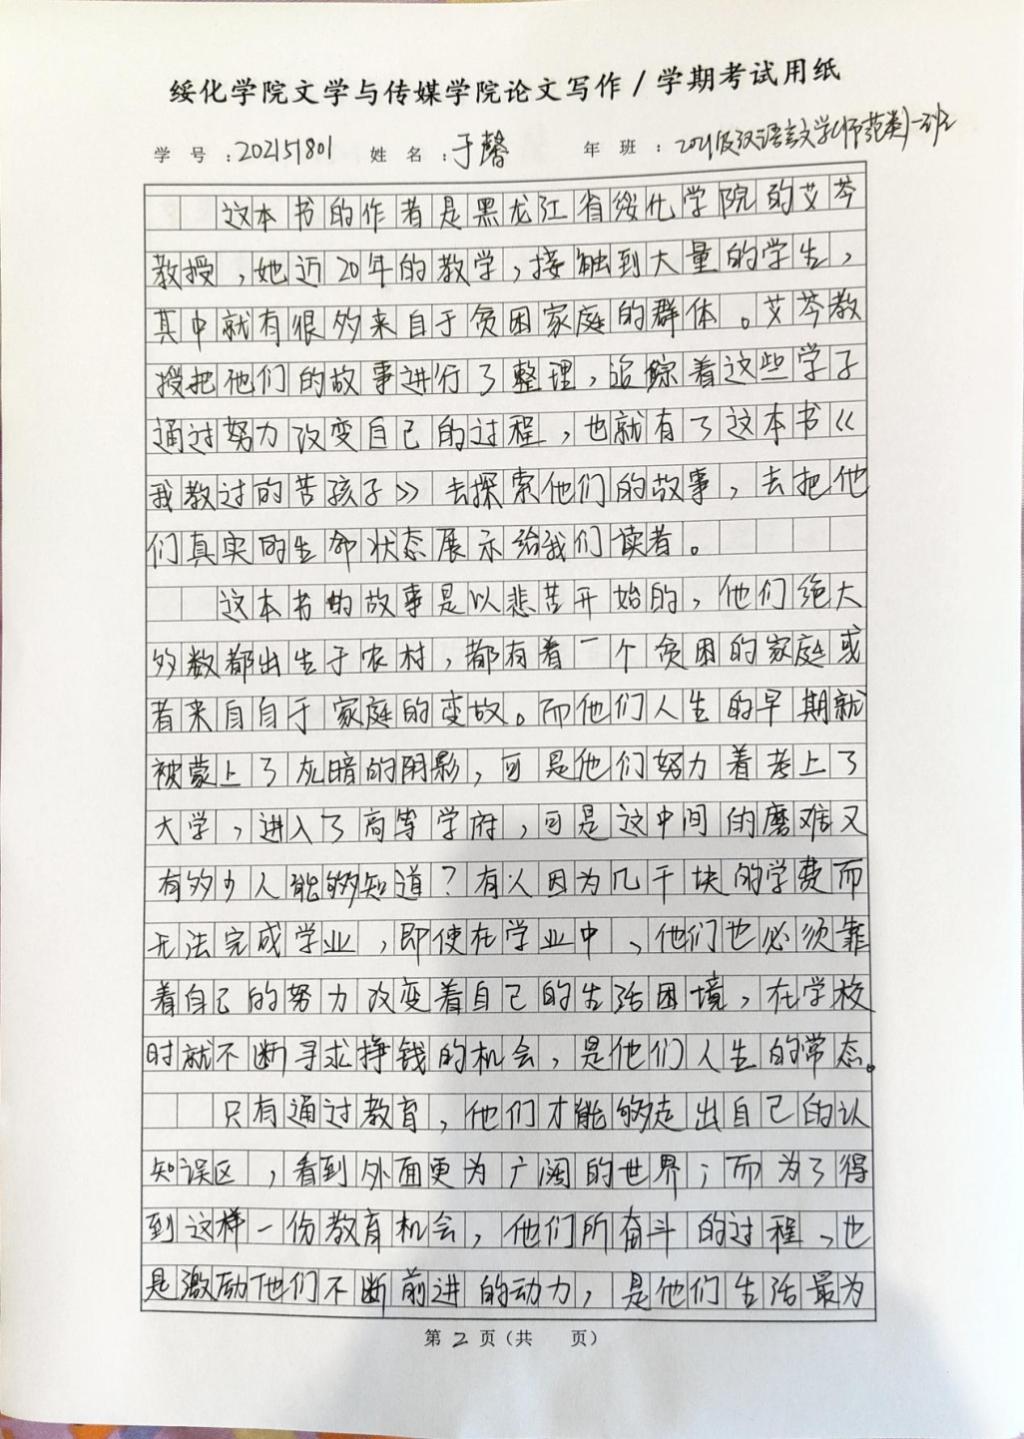 绥化学院文学与传媒学院论文写作/学期考试用纸
学 号:202151801 姓 名:于馨 年 班:2021级汉语言文学(师范类)一班
这本书的作者是黑龙江省绥化学院的艾苓
教授,她近20年的教学,接触到大量的学生,
其中就有很多来自于贫困家庭的群体。艾苓教
授把他们的故事进行了整理,追踪着这些学子
通过努力改变自己的过程,也就有了这本书《
我教过的苦孩子》去探索他们的故事,去把他
们真实的生命状态展示给我们读者。
这本书的故事是以悲苦开始的,他们绝大
多数都出生于农村,都有着一个贫困的家庭或
者来自自于家庭的变故。而他们人生的早期就
被蒙上了灰暗的阴影,可是他们努力着考上了
大学,进入了高等学府,可是这中间的磨难又
有多少人能够知道?有人因为几千块的学费而
无法完成学业,即使在学业中、他们也必须靠
着自己的努力改变着自己的生活困境,在学校
时就不断寻求挣钱的机会,是他们人生的常态。
只有通过教育,他们才能够走出自己的认
知误区,看到外面更为广阔的世界;而为了得
到这样一份教育机会,他们所奋斗的过程、也
是激励他们不断前进的动力,是他们生活最为
第2页(共 页)